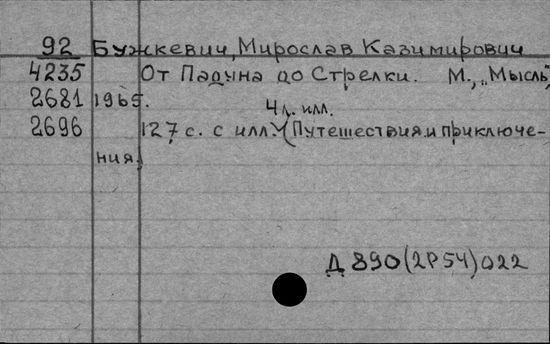 92 Бужкевич, Мирослав Казимирович
4235 От Падуна до Стрелки. М., „Мысль",
2681 1965.
4 л. илл.
2696 127 с. с илл. (Путешествия и приключе-
ния.)
Д 890(2Р54)022